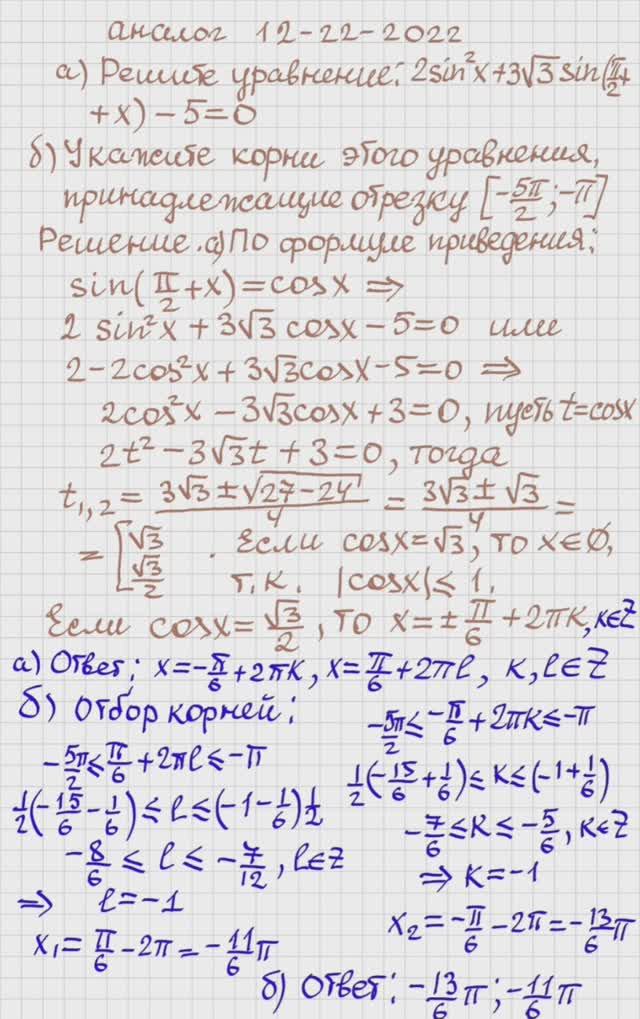 аналог 12-22-2022
а) Решите уравнение: 2sin²x+3√3 sin(π/2+
+x)-5=0
б) Укажите корни этого уравнения,
принадлежащие отрезку [-5π/2;-π]
Решение. а) По формуле приведения:
sin(π/2+x)=cosx ⇒
2 sin²x+3√3 cosx-5=0 или
2-2cos²x+3√3cosx-5=0 ⇒
2cos²x-3√3cosx+3=0, пусть t=cosx
2t²-3√3t+3=0, тогда
t₁,₂=(3√3±√(27-24))/4=(3√3±√3)/4=
=[√3; √3/2. Если cosx=√3, то x∈∅,
т.к. |cosx|≤1.
Если cosx=√3/2, то x=±π/6+2πk, k∈Z
а) Ответ: x=-π/6+2πk, x=π/6+2πl, k,l∈Z
б) Отбор корней:
-5π/2≤π/6+2πl≤-π
1/2(-15/6-1/6)≤l≤(-1-1/6)1/2
-8/6≤l≤-7/12, l∈Z
⇒ l=-1
x₁=π/6-2π=-11/6π
-5π/2≤-π/6+2πk≤-π
1/2(-15/6+1/6)≤k≤(-1+1/6)
-7/6≤k≤-5/6, k∈Z
⇒ k=-1
x₂=-π/6-2π=-13/6π
б) Ответ: -13/6π; -11/6π